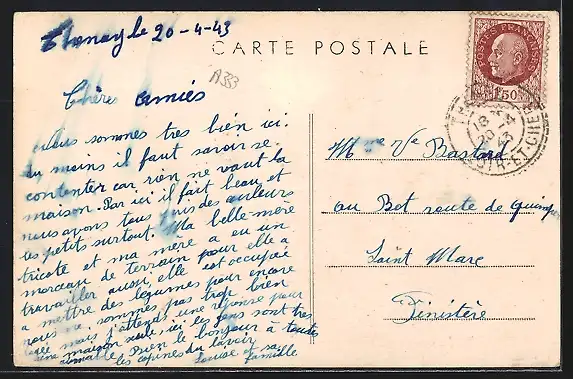 Thenay le 20-4-43
CARTE POSTALE
A333
Chères amies
Nous sommes très bien ici.
du moins il faut savoir se
contenter car rien ne vaut la
maison. Par ici il fait beau et
nous avons tous pris des couleurs
les petits surtout. Ma belle-mère
tricote et ma mère a eu un
morceau de terrain pour elle a
travailler aussi, elle est occupée
a mettre des légumes pour encore
nous ne sommes pas trop bien
logée mais j'attends une réponse pour
une maison seule, ici les gens sont très
aimable. Bien le bonjour à toutes
les copines du lavoir
Louise et sa
famille
POSTES FRANÇAISES
1F50
18
20-4
43
LOIR-ET-CHER
Mme Ve Bastard
au Bot route de Quimper
Saint Marc
Finistère